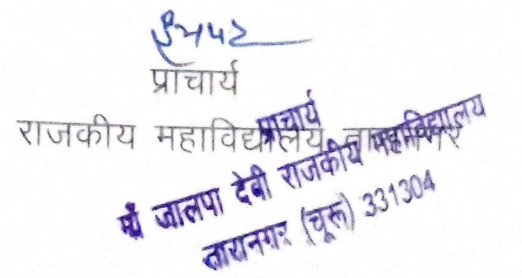 प्राचार्य
राजकीय महाविद्यालय, तारानगर
प्राचार्य
माँ जालपा देवी राजकीय महाविद्यालय
तारानगर (चूरू) 331304